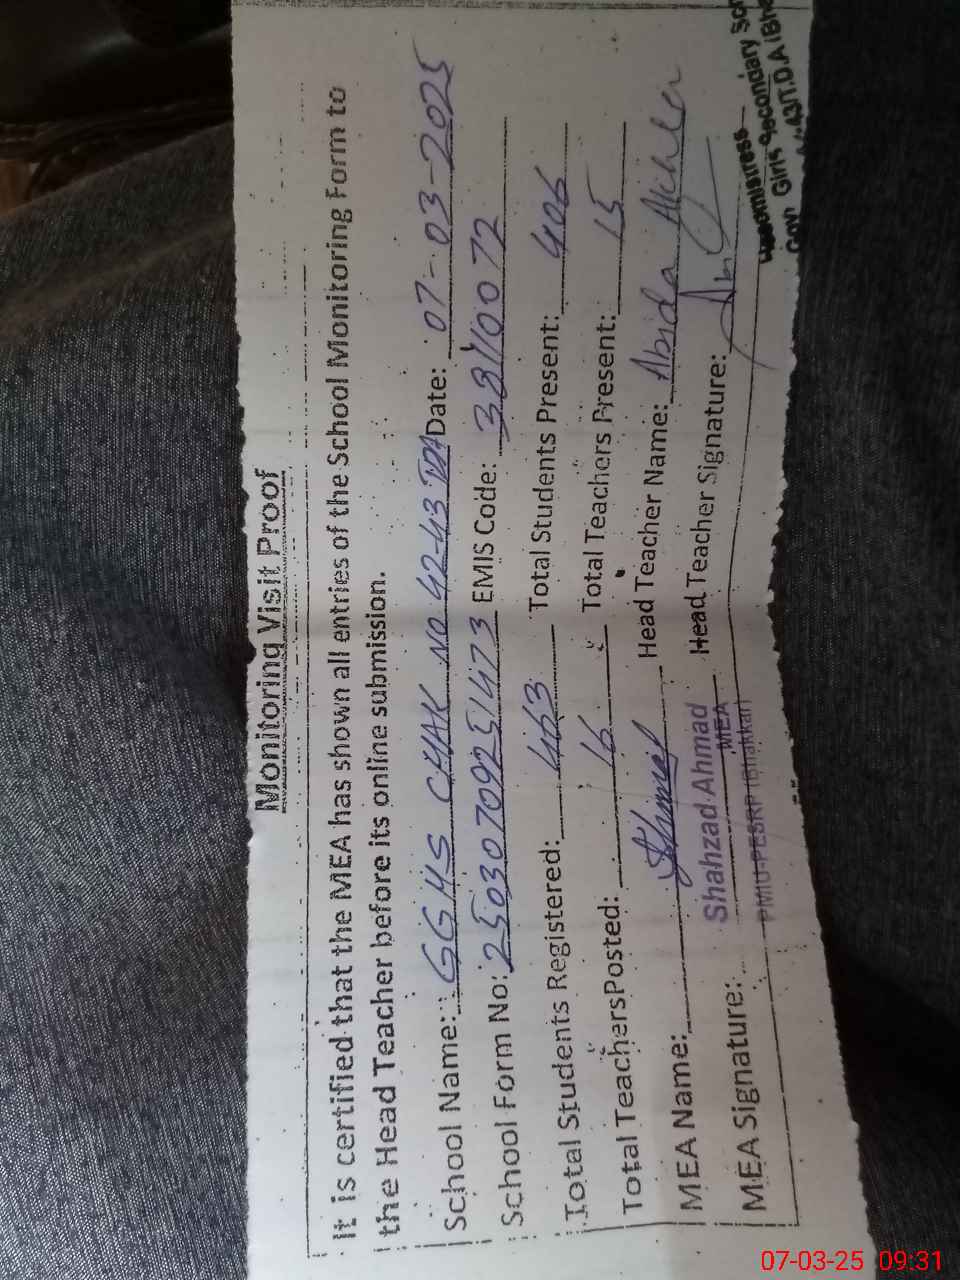 Monitoring Visit Proof
It is certified that the MEA has shown all entries of the School Monitoring Form to
the Head Teacher before its online submission.
School Name: GGHS CHAK NO 42-43 TDA Date: 07-03-2025
School Form No: 25030709251473 EMIS Code: 38110072
Total Students Registered: 463 Total Students Present: 406
Total Teachers Posted: 16 Total Teachers Present: 15
MEA Name: Head Teacher Name: Abida
Shahzad Ahmad
MEA
MEA Signature: Head Teacher Signature:
PMIU-PESRP (Bhakkar)
Headmistress
Govt Girls Secondary
43/T.D.A (Bha
07-03-25 09:31